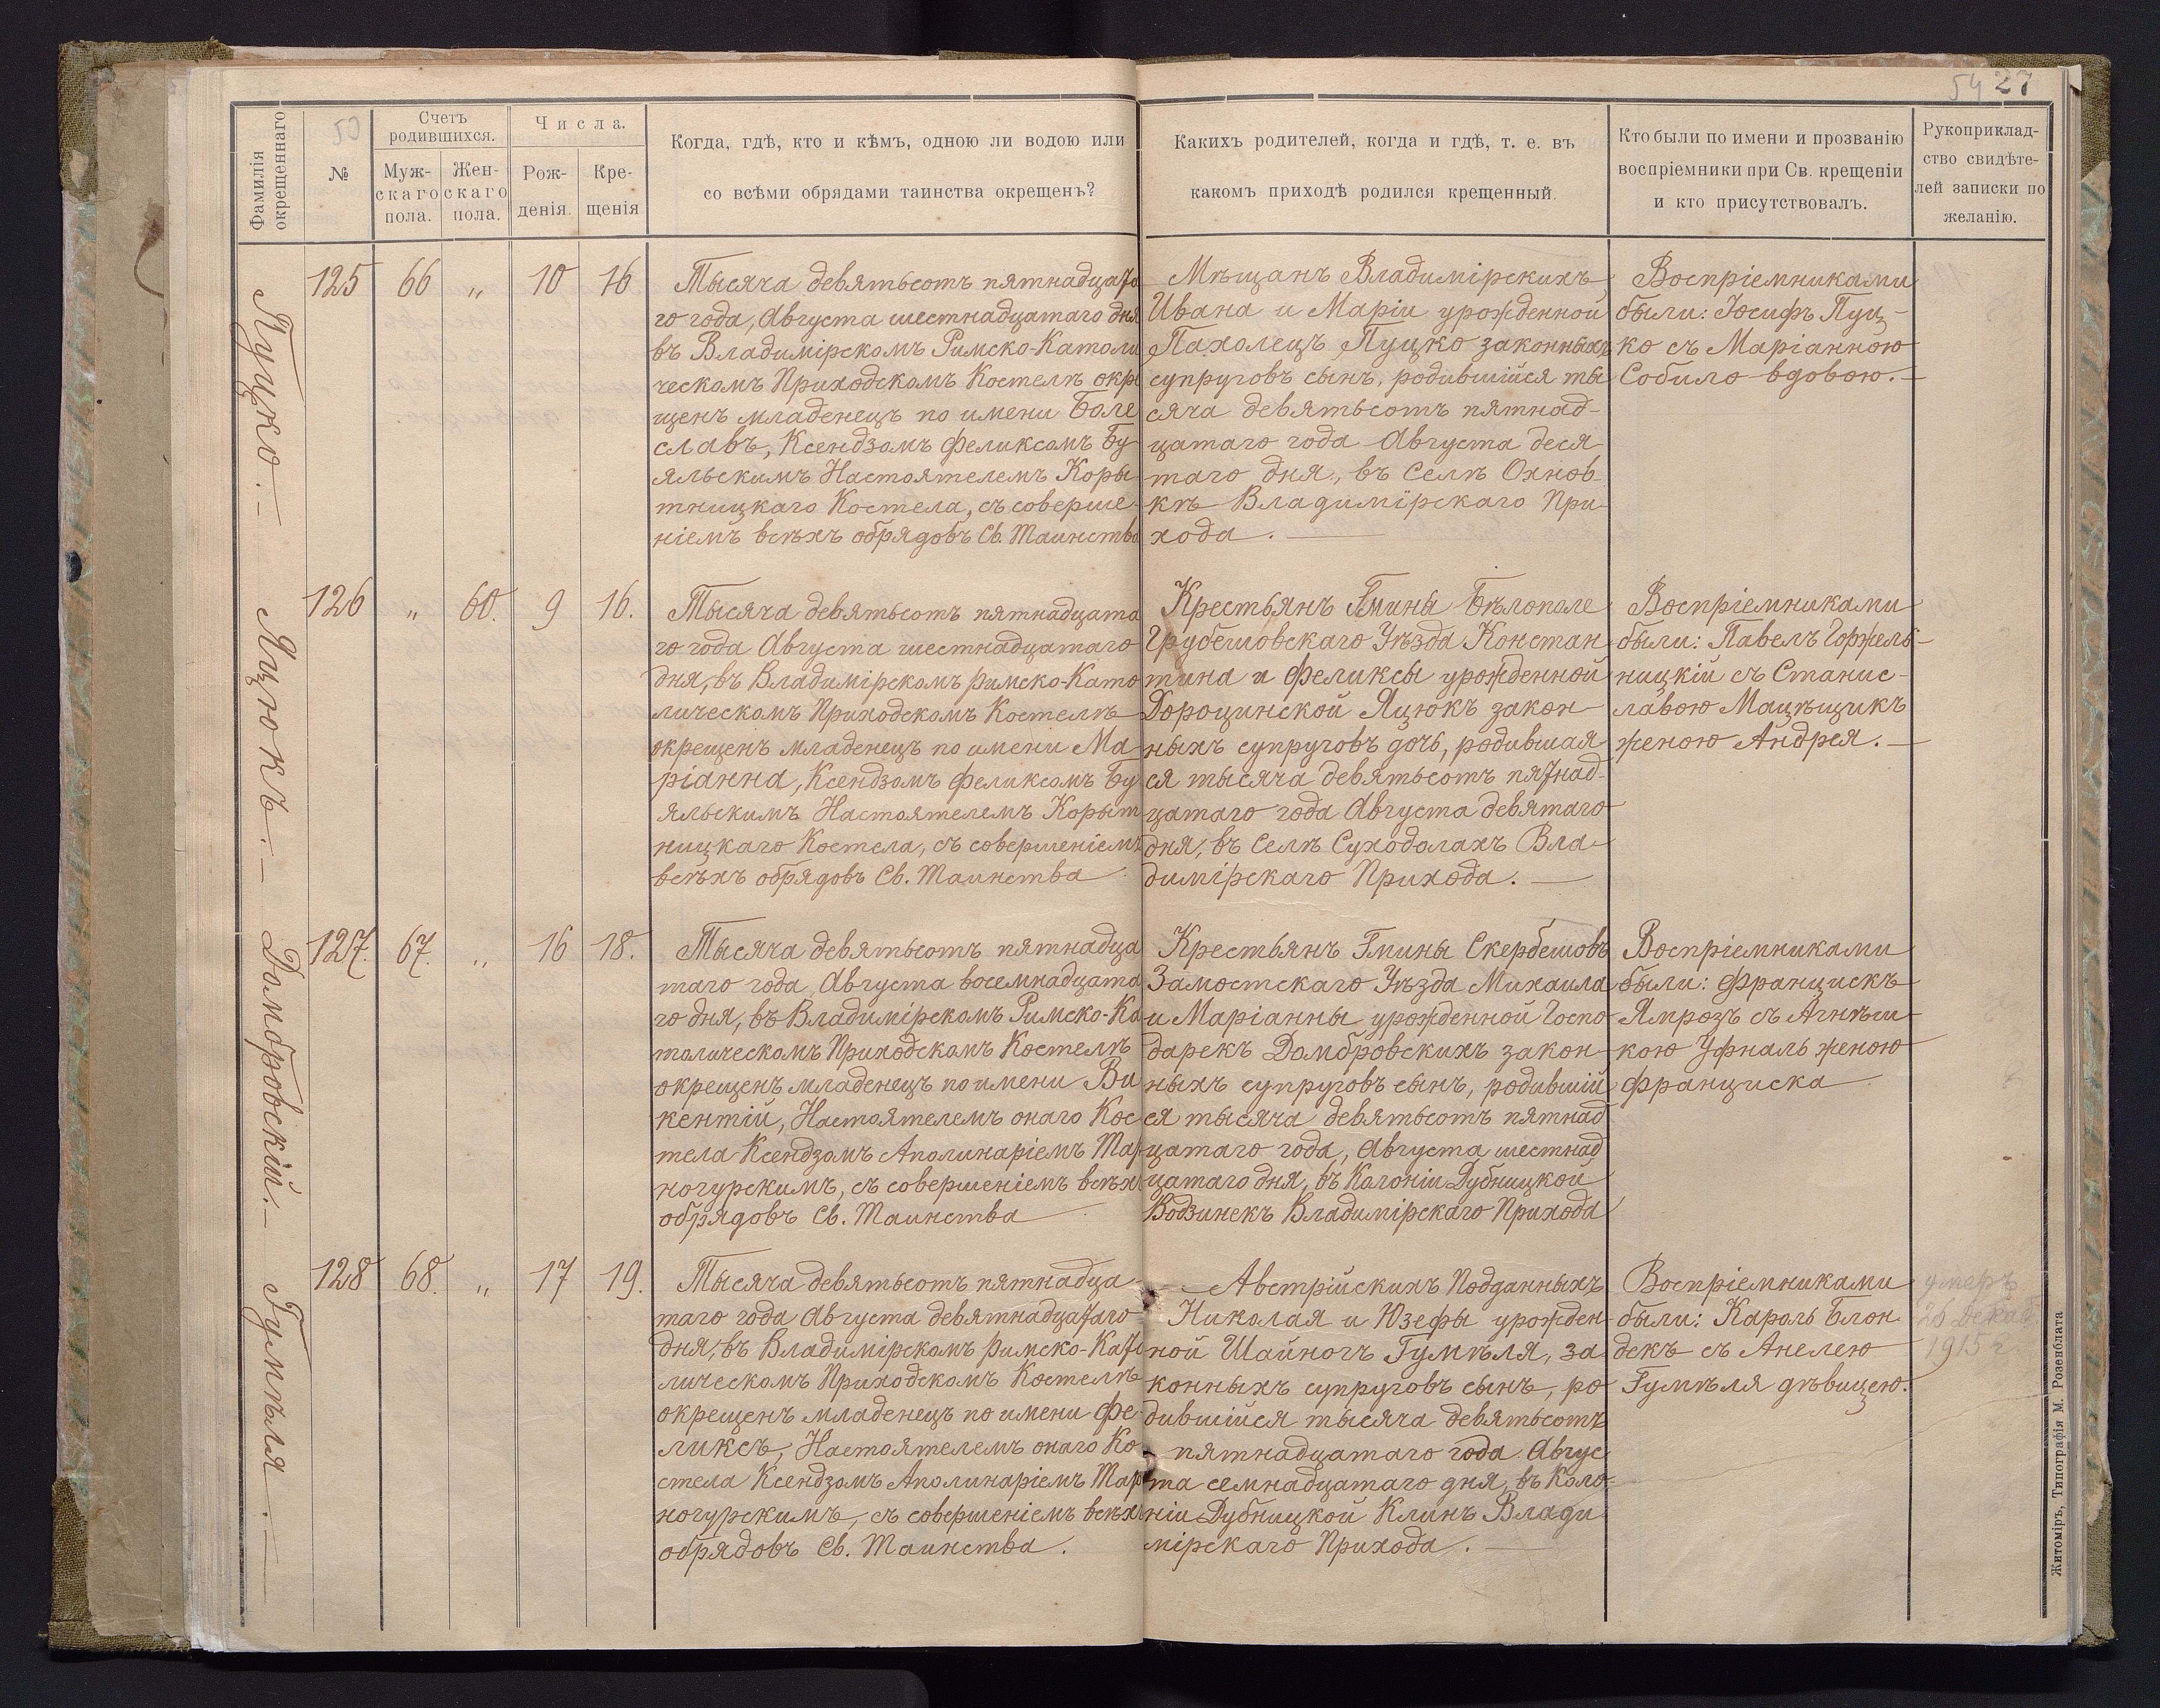 54 27
Фамилія окрещеннаго
53
№
Счетъ родившихся.
Мужскаго пола.
Женскаго пола.
Числа.
Рожденія.
Крещенія
Когда, гдѣ, кто и кѣмъ, одною ли водою или
со всѣми обрядами таинства окрещенъ?
Какихъ родителей, когда и гдѣ, т. е. въ
какомъ приходѣ родился крещенный.
Кто были по имени и прозванію
воспріемники при Св. крещеніи
и кто присутствовалъ.
Рукоприклад-
ство свидѣте-
лей записки по
желанію.
Пуцко. –
125 66 „ 10 16
Тысяча девятьсотъ пятнадцата
го года, Августа шестнадцатаго дня
въ Владимірскомъ Римско-Католи
ческомъ Приходскомъ Костелѣ окре
щенъ младенецъ по имени Боле
славъ, Ксендзомъ Феликсомъ Бу
яльскимъ Настоятелемъ Коры
тницкаго Костела, съ соверше
ніемъ всѣхъ обрядовъ Св. Таинства
Мѣщанъ Владимірскихъ
Ивана и Маріи урожденной
Пахолецъ Пуцко законныхъ
супруговъ сынъ, родившійся ты
сяча девятьсотъ пятнад-
цатаго года Августа деся
таго дня, въ Селѣ Охнов
кѣ Владимірскаго При
хода. —
Воспріемниками
были: Іосифъ Пуц-
ко съ Маріанною
Собило вдовою. —
Яцюкъ. –
126 „ 60. 9 16.
Тысяча девятьсотъ пятнадцата
го года Августа шестнадцатаго
дня, въ Владимірскомъ Римско-Като
лическомъ Приходскомъ Костелѣ
окрещенъ младенецъ по имени Ма
ріанна, Ксендзомъ Феликсомъ Бу
яльскимъ Настоятелемъ Корыт
ницкаго Костела, съ совершеніемъ
всѣхъ обрядовъ Св. Таинства
Крестьянъ Гмины Бѣлополе
Грубешовскаго Уѣзда Констан
тина и Феликсы урожденной
Дороцинской Яцюкъ закон
ныхъ супруговъ дочь, родившая
ся тысяча девятьсотъ пятнад-
цатаго года Августа девятаго
дня, въ Селѣ Суходолахъ Вла-
димірскаго Прихода. —
Воспріемниками
были: Павелъ Горжель-
ницкій съ Станис-
лавою Мацѣщикъ
женою Андрея. —
Домбровскій. –
127. 67. „ 16 18.
Тысяча девятьсотъ пятнадца
таго года Августа восемнадцата
го дня, въ Владимірскомъ Римско-Ка
толическомъ Приходскомъ Костелѣ
окрещенъ младенецъ по имени Ви
кентій, Настоятелемъ онаго Кос
тела Ксендзомъ Аполинаріемъ Тар
ногурскимъ, съ совершеніемъ всѣхъ
обрядовъ Св. Таинства
Крестьянъ Гмины Скербешовъ
Замостскаго Уѣзда Михаила
и Маріанны урожденной Госпо
дарекъ Домбровскихъ закон
ныхъ супруговъ сынъ, родившій
ся тысяча девятьсотъ пятнад
цатаго года, Августа шестнад
цатаго дня, въ Колоніи Дубницкой
Водзинекъ Владимірскаго Прихода
Воспріемниками
были: Францискъ
Ямрозъ съ Агнѣш-
кою Уфналь женою
Франциска
Гумѣля. —
128 68. „ 17 19.
Тысяча девятьсотъ пятнадца
таго года Августа девятнадцатаго
дня, въ Владимірскомъ Римско-Като
лическомъ Приходскомъ Костелѣ
окрещенъ младенецъ по имени Фе
ликсъ, Настоятелемъ онаго Ко
стела Ксендзомъ Аполинаріемъ Тар
ногурскимъ, съ совершеніемъ всѣхъ
обрядовъ Св. Таинства.
Австрійскихъ Подданныхъ
Николая и Юзефы урожден
ной Шайногъ Гумѣля, за
конныхъ супруговъ сынъ, ро
дившійся тысяча девятьсотъ
пятнадцатаго года Авгус
та семнадцатаго дня, въ Коло
ніи Дубницкой Клинъ Влади
мірскаго Прихода. —
Воспріемниками
были: Кароль Блон
декъ съ Анелею
Гумѣля дѣвицею.
умеръ
26 Декаб.
1915 г.
Житоміръ, Типографія М. Розенблата